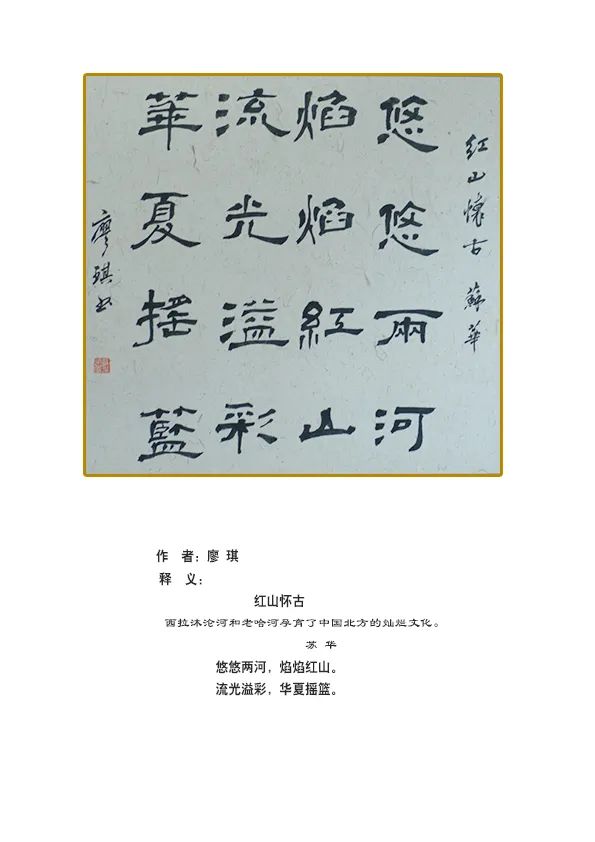 红山懷古 蘇華
悠悠兩河
焰焰紅山
流光溢彩
華夏摇籃
廖琪书
作 者：廖 琪
释 义：
红山怀古
西拉沐沦河和老哈河孕育了中国北方的灿烂文化。
苏 华
悠悠两河，焰焰红山。
流光溢彩，华夏摇篮。